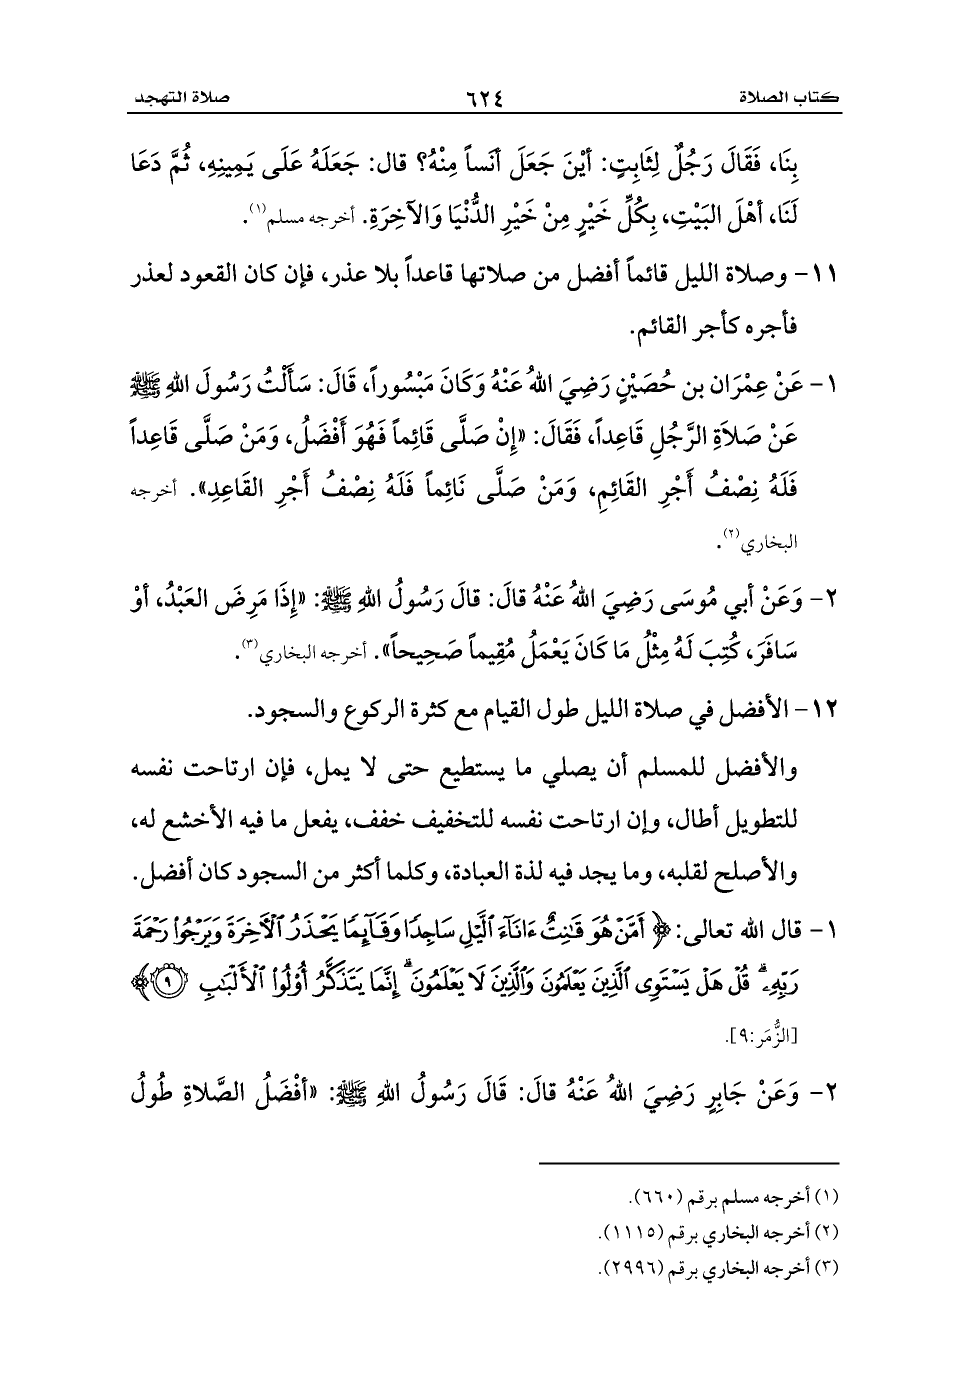 كتاب الصلاة ٦٢٤ صلاة التهجد
بِنَا، فَقَالَ رَجُلٌ لِثَابِتٍ: أيْنَ جَعَلَ أنَساً مِنْهُ؟ قال: جَعَلَهُ عَلَى يَمِينِهِ، ثُمَّ دَعَا
لَنَا، أهْلَ البَيْتِ، بِكُلِّ خَيْرٍ مِنْ خَيْرِ الدُّنْيَا وَالآخِرَةِ. أخرجه مسلم(١).
١١- وصلاة الليل قائماً أفضل من صلاتها قاعداً بلا عذر، فإن كان القعود لعذر
فأجره كأجر القائم.
١- عَنْ عِمْرَان بن حُصَيْنٍ رَضِيَ اللهُ عَنْهُ وَكَانَ مَبْسُوراً، قَالَ: سَأَلْتُ رَسُولَ اللهِ ﷺ
عَنْ صَلاَةِ الرَّجُلِ قَاعِداً، فَقَالَ: «إِنْ صَلَّى قَائِماً فَهُوَ أَفْضَلُ، وَمَنْ صَلَّى قَاعِداً
فَلَهُ نِصْفُ أَجْرِ القَائِمِ، وَمَنْ صَلَّى نَائِماً فَلَهُ نِصْفُ أَجْرِ القَاعِدِ». أخرجه
البخاري(٢).
٢- وَعَنْ أبي مُوسَى رَضِيَ اللهُ عَنْهُ قالَ: قالَ رَسُولُ اللهِ ﷺ: «إِذَا مَرِضَ العَبْدُ، أوْ
سَافَرَ، كُتِبَ لَهُ مِثْلُ مَا كَانَ يَعْمَلُ مُقِيماً صَحِيحاً». أخرجه البخاري(٣).
١٢- الأفضل في صلاة الليل طول القيام مع كثرة الركوع والسجود.
والأفضل للمسلم أن يصلي ما يستطيع حتى لا يمل، فإن ارتاحت نفسه
للتطويل أطال، وإن ارتاحت نفسه للتخفيف خفف، يفعل ما فيه الأخشع له،
والأصلح لقلبه، وما يجد فيه لذة العبادة، وكلما أكثر من السجود كان أفضل.
١- قال الله تعالى: ﴿أَمَّنْ هُوَ قَٰنِتٌ ءَانَآءَ ٱلَّيْلِ سَاجِدًا وَقَآئِمًا يَحْذَرُ ٱلْأَخِرَةَ وَيَرْجُوا۟ رَحْمَةَ
رَبِّهِۦ ۗ قُلْ هَلْ يَسْتَوِى ٱلَّذِينَ يَعْلَمُونَ وَٱلَّذِينَ لَا يَعْلَمُونَ ۗ إِنَّمَا يَتَذَكَّرُ أُو۟لُوا۟ ٱلْأَلْبَٰبِ ٩﴾
[الزُّمَر:٩].
٢- وَعَنْ جَابِرٍ رَضِيَ اللهُ عَنْهُ قالَ: قَالَ رَسُولُ اللهِ ﷺ: «أفْضَلُ الصَّلاةِ طُولُ
(١) أخرجه مسلم برقم (٦٦٠).
(٢) أخرجه البخاري برقم (١١١٥).
(٣) أخرجه البخاري برقم (٢٩٩٦).